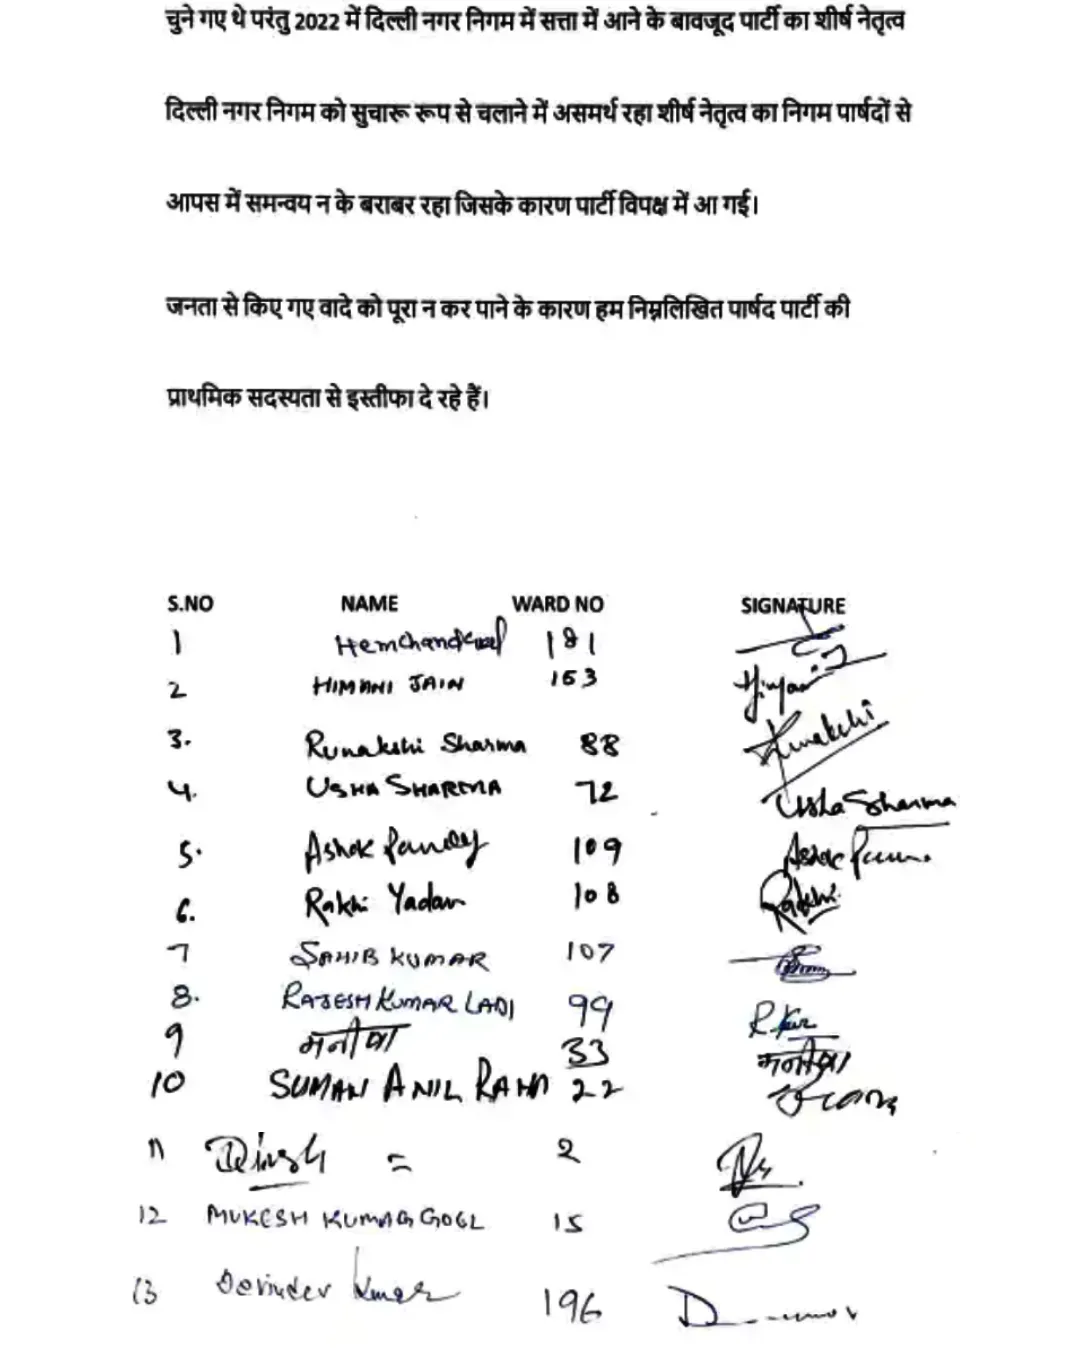 चुने गए थे परंतु 2022 में दिल्ली नगर निगम में सत्ता में आने के बावजूद पार्टी का शीर्ष नेतृत्व
दिल्ली नगर निगम को सुचारू रूप से चलाने में असमर्थ रहा शीर्ष नेतृत्व का निगम पार्षदों से
आपस में समन्वय न के बराबर रहा जिसके कारण पार्टी विपक्ष में आ गई।
जनता से किए गए वादे को पूरा न कर पाने के कारण हम निम्नलिखित पार्षद पार्टी की
प्राथमिक सदस्यता से इस्तीफा दे रहे हैं।
S.NO NAME WARD NO SIGNATURE
1 181
2 HIMANI JAIN 153
3. Runakshi Sharma 88 Runakshi
4. USHA SHARMA 72 Usha Sharma
5. Ashok Pandey 109 Ashok
6. Rakhi Yadav 108 Rakhi
7 SAHIB KUMAR 107
8. RAJESH KUMAR LADI 99 R.Kur
9 मनीषा 33 मनीषा
10 SUMAN ANIL RANA 22
11 Dinesh = 2
12 MUKESH KUMAR GOEL 15
13 Devinder Kumar 196